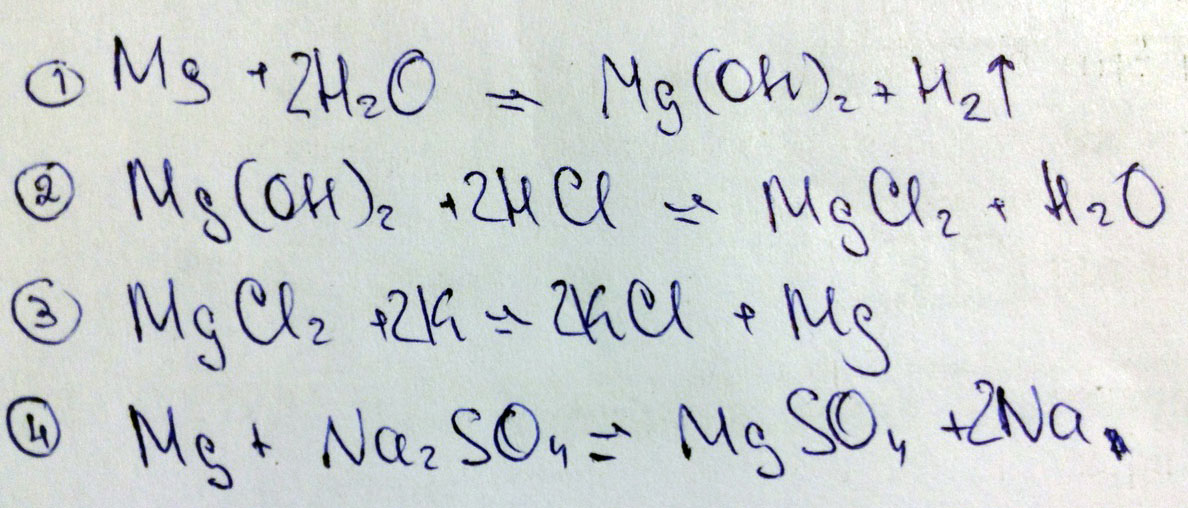 ① Mg + 2H₂O ⇌ Mg(OH)₂ + H₂↑
② Mg(OH)₂ + 2HCl ⇌ MgCl₂ + H₂O
③ MgCl₂ + 2K ⇌ 2KCl + Mg
④ Mg + Na₂SO₄ ⇌ MgSO₄ + 2Na